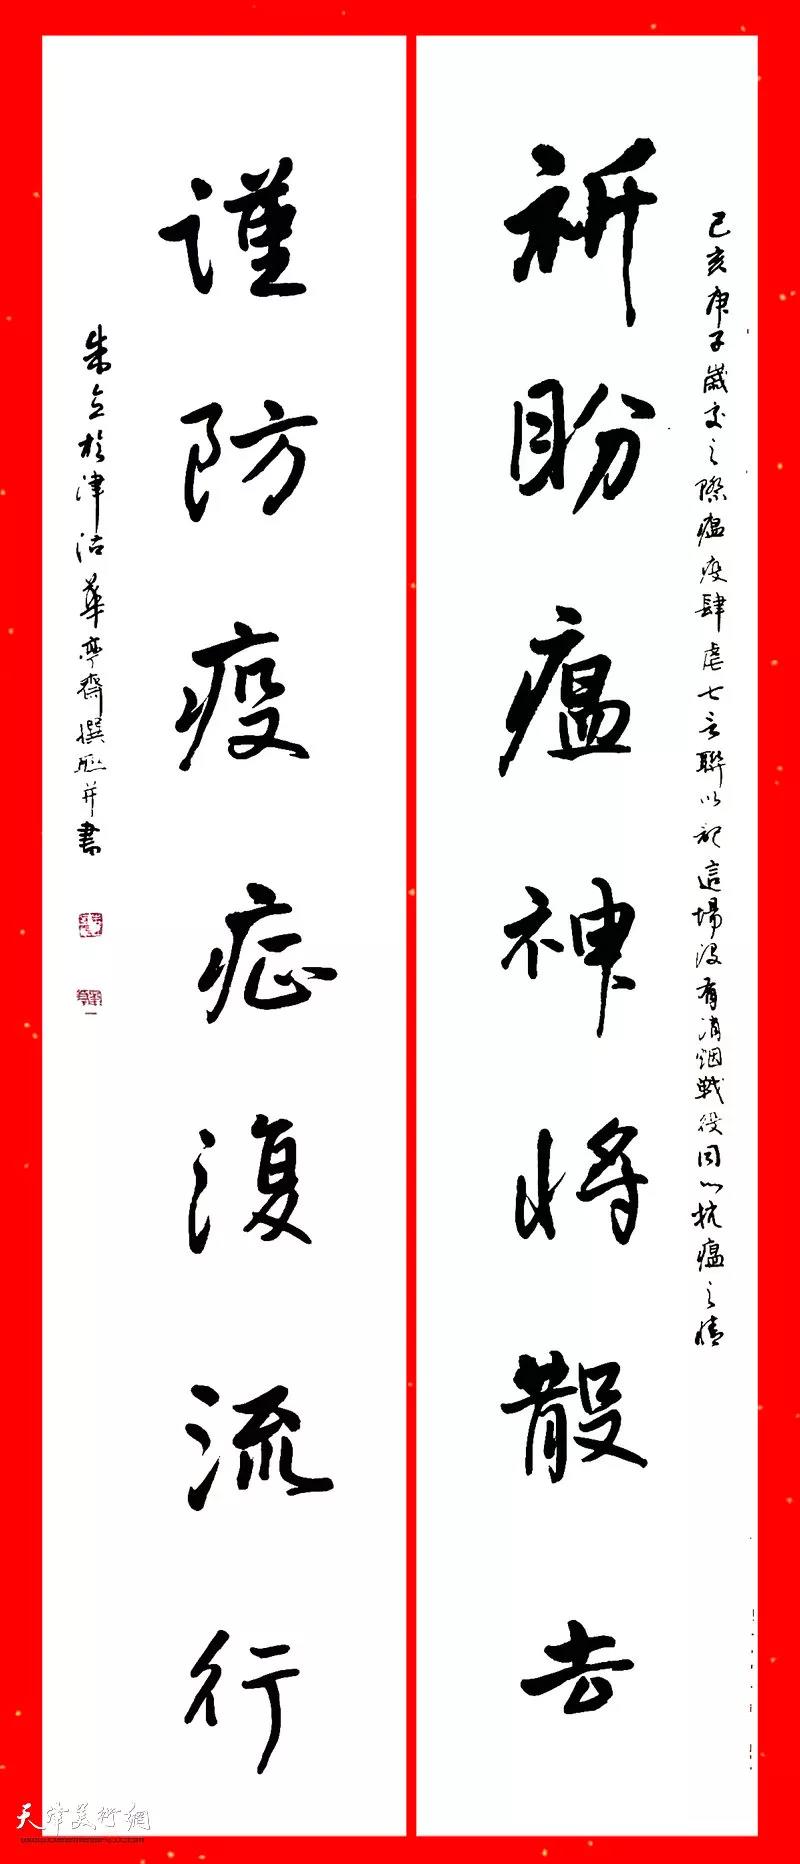 己亥庚子歲交之際瘟疫肆虐七言聯以記這場没有消烟戰役同心抗瘟之情
祈盼瘟神將散去
謹防疫症復流行
朱立於津沽華亭齋撰联并書
天津美術網